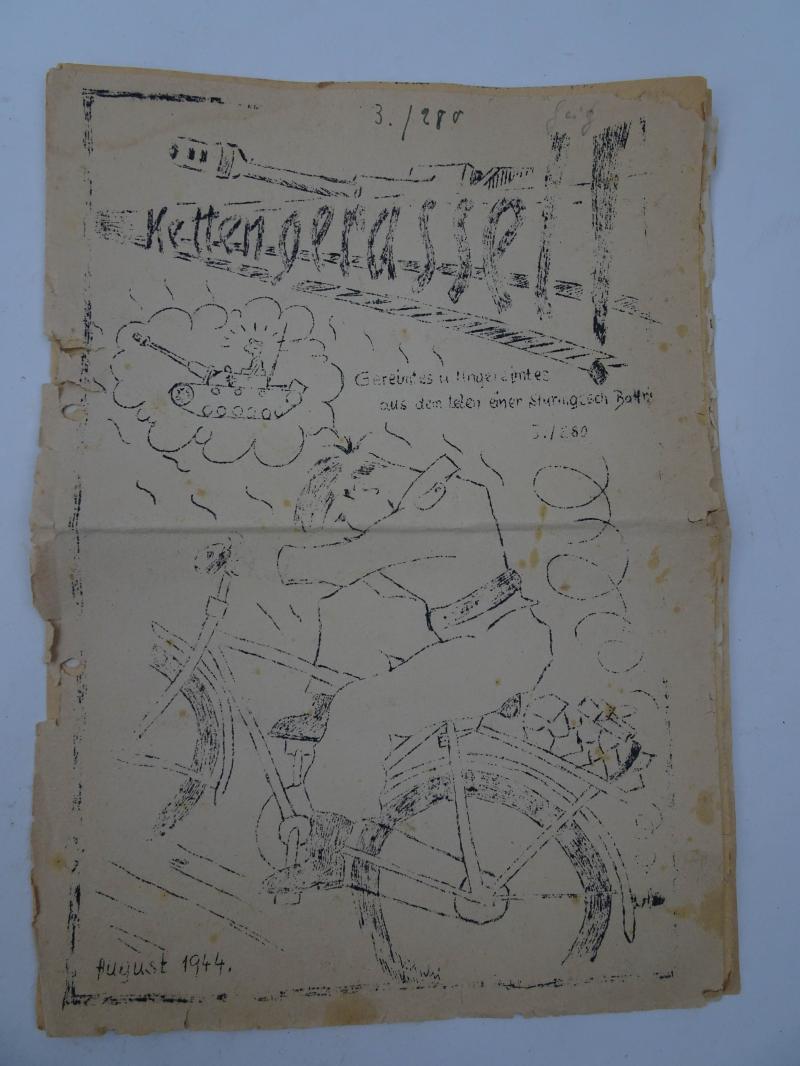 3./280
Kettengerassel!
Gereimtes u. Ungereimtes
aus dem leben einer Sturmgesch. Battr.
3./280
August 1944.